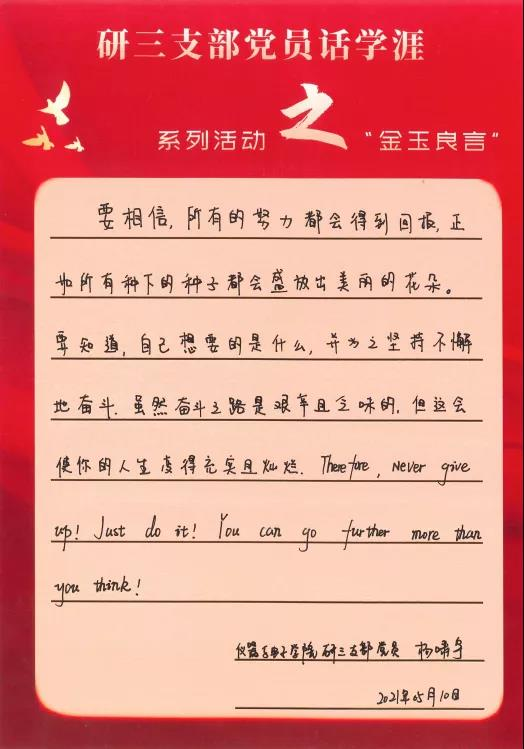 研三支部党员话学涯
系列活动之“金玉良言”
要相信,所有的努力都会得到回报,正
如所有种下的种子都会盛放出美丽的花朵。
要知道,自己想要的是什么,并为之坚持不懈
地奋斗.虽然奋斗之路是艰辛且乏味的,但这会
使你的人生变得充实且灿烂. Therefore, Never give
up! Just do it! You can go further more than
you think!
仪器与电子学院研三支部党员 杨啸宇
2021年05月10日